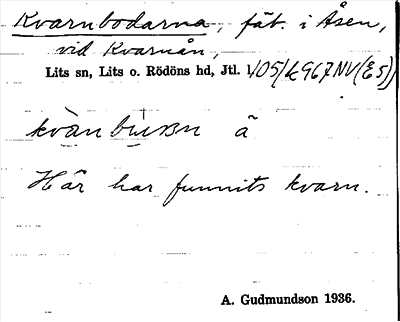 Kvarnbodarna, fäb. i Åsen,
vid Kvarnån,
Lits sn, Lits o. Rödöns hd, Jtl.
ä
Här har funnits kvarn.
A. Gudmundson 1936.